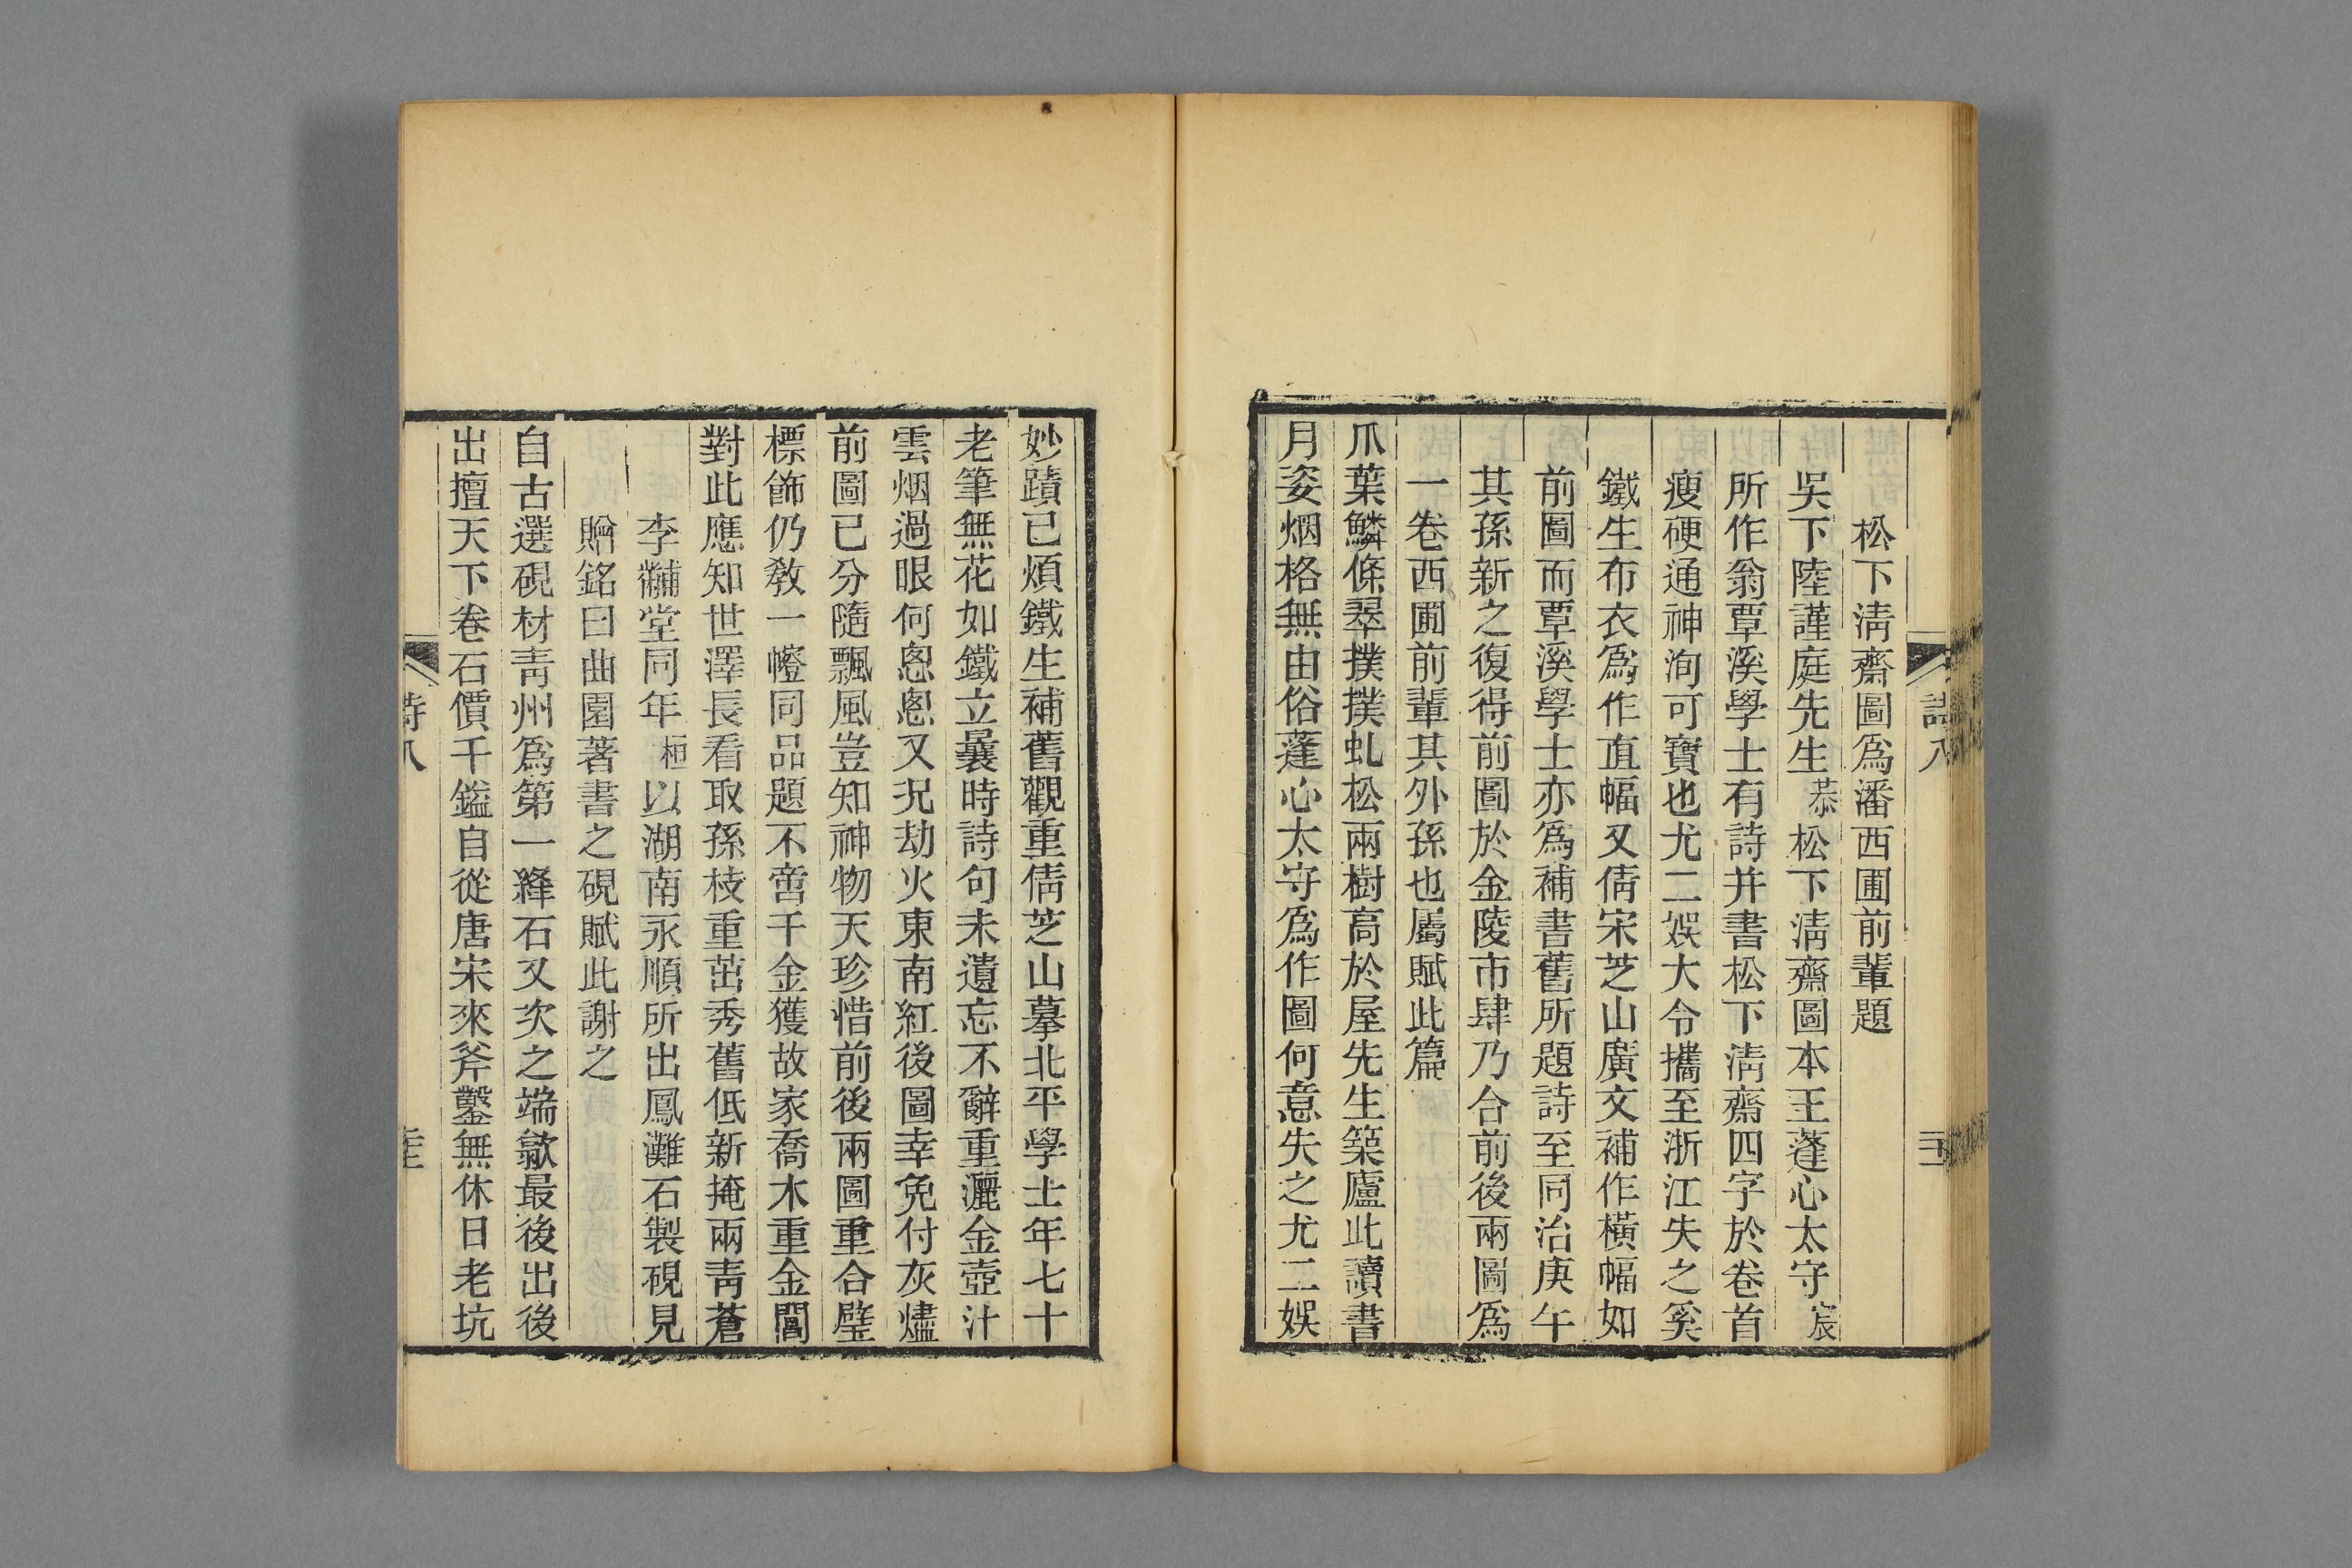 松下淸齋圖爲潘西圃前輩題
吳下陸謹庭先生恭松下淸齋圖本王蓬心太守宸
所作翁覃溪學士有詩并書松下淸齋四字於卷首
瘦硬通神洵可寶也尤二娛大令攜至浙江失之奚
鐵生布衣爲作直幅又倩宋芝山廣文補作橫幅如
前圖而覃溪學士亦爲補書舊所題詩至同治庚午
其孫新之復得前圖於金陵市肆乃合前後兩圖爲
一卷西圃前輩其外孫也屬賦此篇
爪葉鱗條翠撲撲虬松兩樹高於屋先生築廬此讀書
月姿烟格無由俗蓬心太守爲作圖何意失之尤二娛
妙蹟已煩鐵生補舊觀重倩芝山摹北平學士年七十
老筆無花如鐵立曩時詩句未遺忘不辭重灑金壺汁
雲烟過眼何悤悤又況劫火東南紅後圖幸免付灰燼
前圖已分隨飄風豈知神物天珍惜前後兩圖重合璧
標飾仍敎一㡧同品題不啻千金獲故家喬木重金閶
對此應知世澤長看取孫枝重茁秀舊低新掩兩靑蒼
李黼堂同年桓以湖南永順所出鳳灘石製硯見
贈銘曰曲園著書之硯賦此謝之
自古選硯材靑州爲第一絳石又次之端歙最後出後
出擅天下卷石價千鎰自從唐宋來斧鑿無休日老坑
詩八